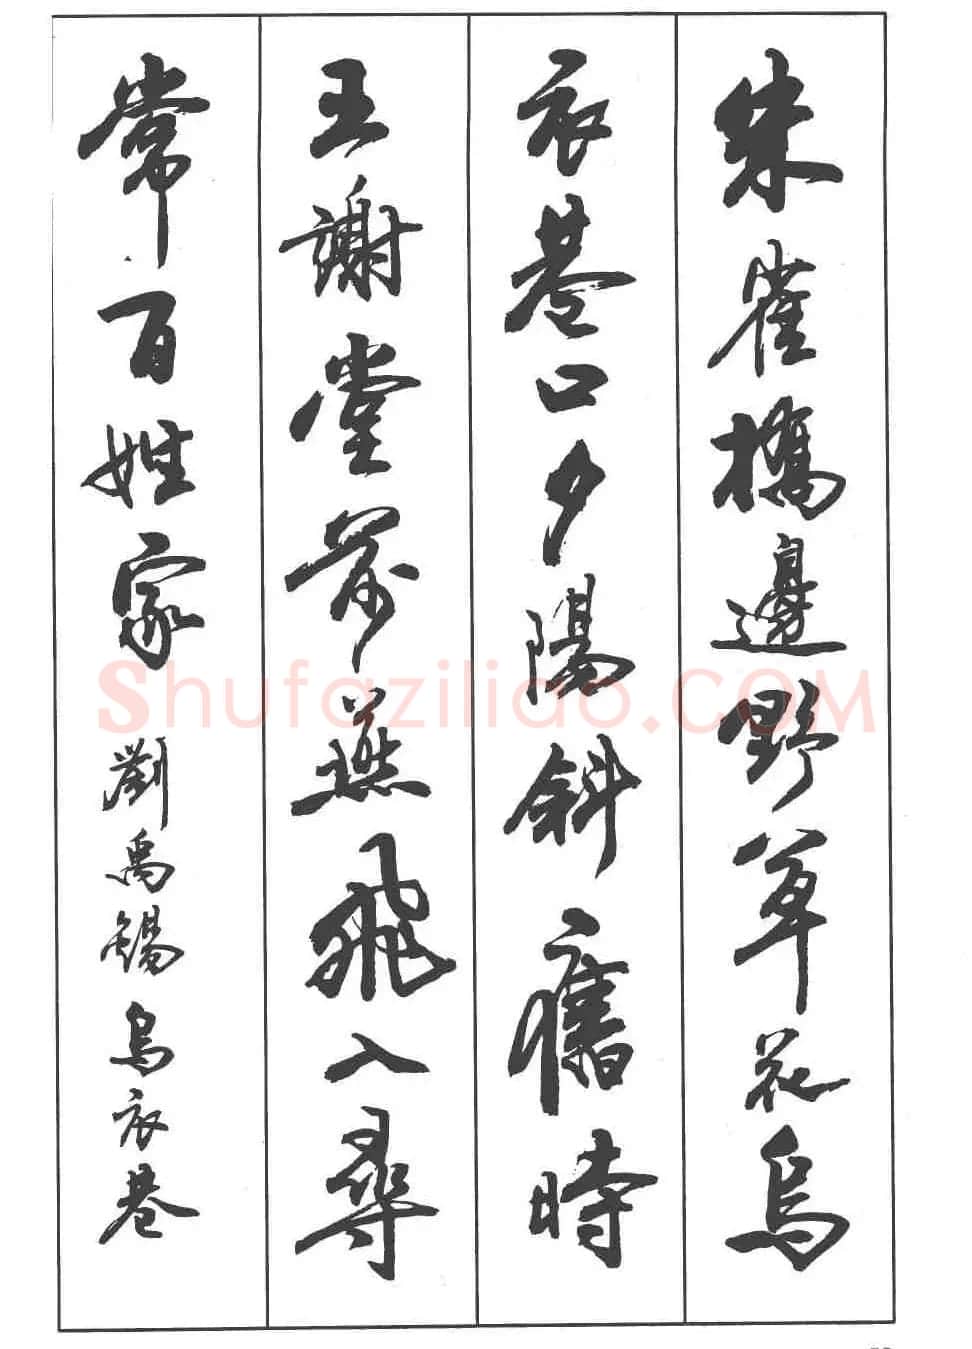 朱雀橋邊野草花烏
衣巷口夕陽斜舊時
王謝堂前燕飛入尋
常百姓家 劉禹錫烏衣巷
Shufaziliao.COM